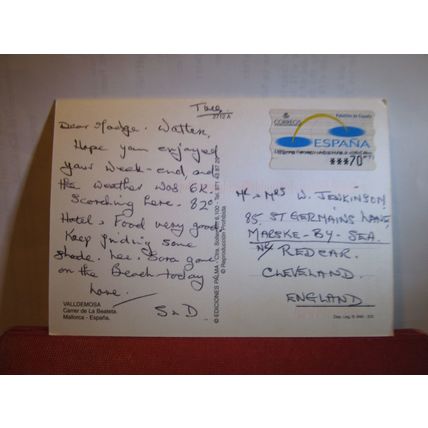 Tues.
2710 A
Dear Madge. Watten,
Hope you enjoyed
your week-end, and
the weather was OK.
Scorching here. 82°
Hotel & Food very good
Keep finding some
shade. Lee. Sora gone
on the Beach today
Love.
S & D
VALLDEMOSA
Carrer de La Beateta
Mallorca - España.
© EDICIONES PALMA
© Reproducción Prohibida
CORREOS
ESPAÑA
***70 PT
Mr & Mrs W. JENKINSON.
85, ST GERMAINS LANE,
MARSKE-BY-SEA.
REDCAR.
CLEVELAND.
ENGLAND